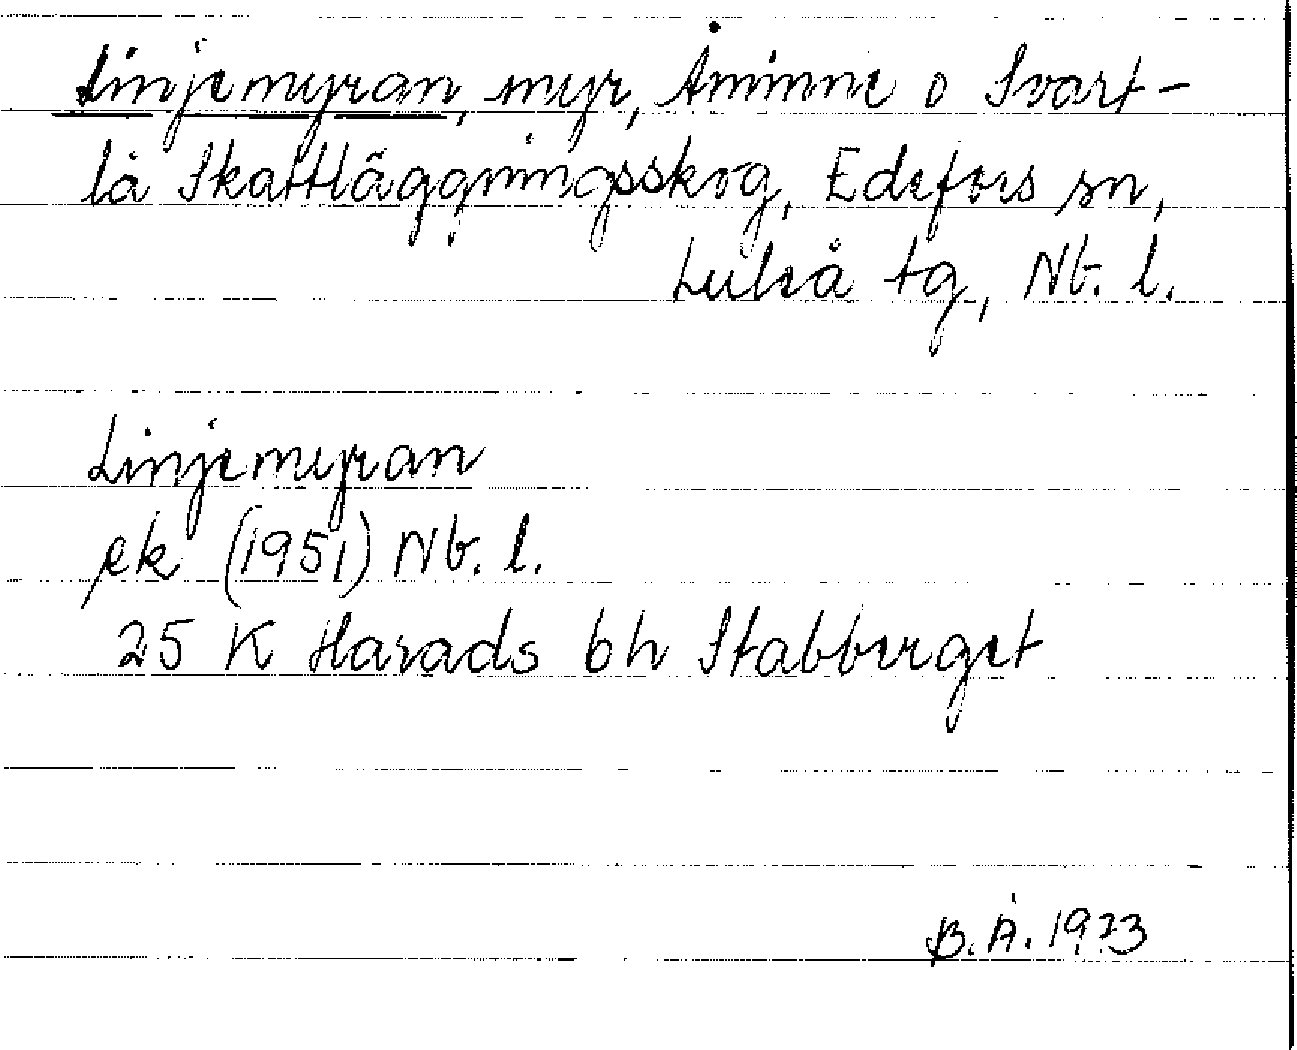 Linjemyran, myr, Åminne o Svart-
lå Skattläggningsskog, Edefors sn,
Luleå tg, Nb. l.
Linjemyran
ek (1951) Nb. l.
25 K Harads bh Stabberget
B.Å. 1973